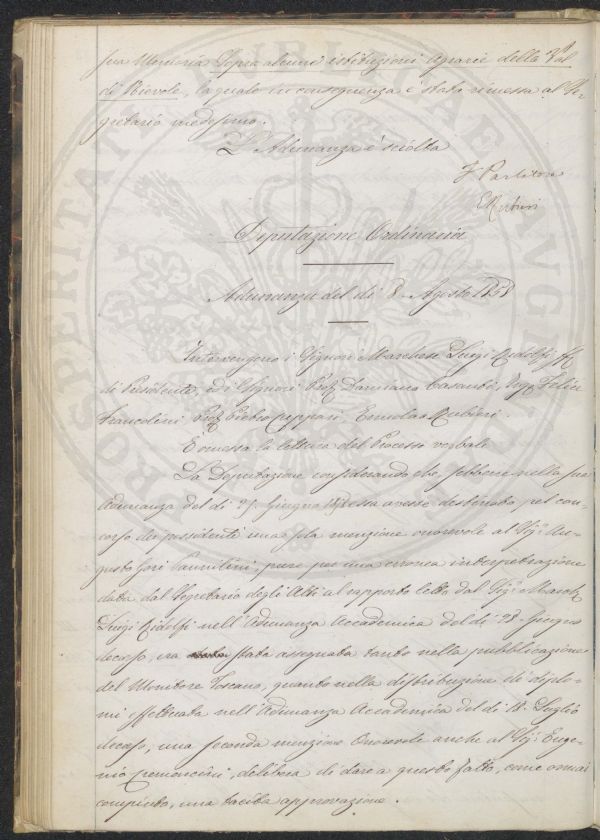 sua Memoria Sopra alcune istituzioni agrarie della Val
di Nievole, la quale in conseguenza è stata rimessa al Se-
gretario medesimo.
L'Adunanza è sciolta
Deputazione Ordinaria
Adunanza del dì 8. Agosto 1858
Intervengono i Signori Marchese Luigi Ridolfi ff.
di Presidente, ed i Signori Prof. Casanti, Ing. Felice
Francolini, Prof. Pietro Cuppari, Ermolao Rubieri.
È omessa la lettura del Processo verbale
La Deputazione considerando che, sebbene nella sua
adunanza del dì 27. Giugno essa avesse destinata pel con-
corso dei possidenti una sola menzione onorevole al Sig.r Au-
gusto Gori Pannilini, pure per una erronea interpretazione
data dal Segretario degli Atti al rapporto letto dal Sig.r March.
Luigi Ridolfi nell'Adunanza Accademica del dì 28. Giugno
decorso, era stata assegnata tanto nella pubblicazione
del Monitore Toscano, quanto nella distribuzione di diplo-
mi effettuata nell'Adunanza Accademica del dì 18. Luglio
decorso, una seconda menzione Onorevole anche al Sig.r Euge-
nio Cremoncini, delibera di dare a questo fatto, come omai
compiuto, una tacita approvazione.